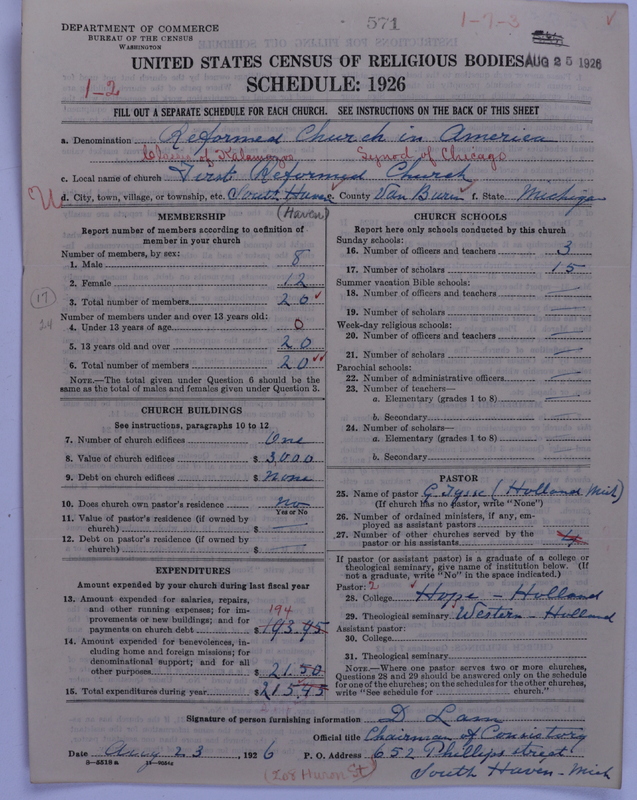 DEPARTMENT OF COMMERCE
BUREAU OF THE CENSUS
WASHINGTON
571
1-7-3
UNITED STATES CENSUS OF RELIGIOUS BODIES
AUG 25 1926
1-2
SCHEDULE: 1926
FILL OUT A SEPARATE SCHEDULE FOR EACH CHURCH. SEE INSTRUCTIONS ON THE BACK OF THIS SHEET
a. Denomination Reformed Church in America
Classis of Kalamazoo Synod of Chicago
c. Local name of church First Reformed Church
d. City, town, village, or township, etc. South Haven County Van Buren f. State Michigan
(Haven)
MEMBERSHIP
Report number of members according to definition of
member in your church
Number of members, by sex:
1. Male 8
2. Female 12
3. Total number of members 20
Number of members under and over 13 years old:
4. Under 13 years of age 0
5. 13 years old and over 20
6. Total number of members 20
NOTE.—The total given under Question 6 should be the
same as the total of males and females given under Question 3.
17
24
CHURCH BUILDINGS
See instructions, paragraphs 10 to 12
7. Number of church edifices One
8. Value of church edifices $ 3,000
9. Debt on church edifices $ None
10. Does church own pastor's residence no
Yes or No
11. Value of pastor's residence (if owned by
church) $ —
12. Debt on pastor's residence (if owned by
church) $ —
EXPENDITURES
Amount expended by your church during last fiscal year
13. Amount expended for salaries, repairs,
and other running expenses; for im-
provements or new buildings; and for
payments on church debt $ 193.95
194
14. Amount expended for benevolences, in-
cluding home and foreign missions; for
denominational support; and for all
other purposes $ 21.50
15. Total expenditures during year $ 215.45
CHURCH SCHOOLS
Report here only schools conducted by this church
Sunday schools:
16. Number of officers and teachers 3
17. Number of scholars 15
Summer vacation Bible schools:
18. Number of officers and teachers —
19. Number of scholars —
Week-day religious schools:
20. Number of officers and teachers —
21. Number of scholars —
Parochial schools:
22. Number of administrative officers —
23. Number of teachers—
a. Elementary (grades 1 to 8) —
b. Secondary —
24. Number of scholars—
a. Elementary (grades 1 to 8) —
b. Secondary —
PASTOR
25. Name of pastor G. Tysse (Holland Mich)
(If church has no pastor, write "None")
26. Number of ordained ministers, if any, em-
ployed as assistant pastors
27. Number of other churches served by the
pastor or his assistants 4
If pastor (or assistant pastor) is a graduate of a college or
theological seminary, give name of institution below. (If
not a graduate, write "No" in the space indicated.)
Pastor: 2
28. College Hope - Holland
29. Theological seminary Western - Holland
Assistant pastor:
30. College
31. Theological seminary
NOTE.—Where one pastor serves two or more churches,
Questions 28 and 29 should be answered only on the schedule
for one of the churches; on the schedules for the other churches,
write "See schedule for church."
Signature of person furnishing information D Lam
Official title Chairman of Consistory
Date Aug 23, 1926 P. O. Address 652 Phillips street
(208 Huron St) South Haven - Mich